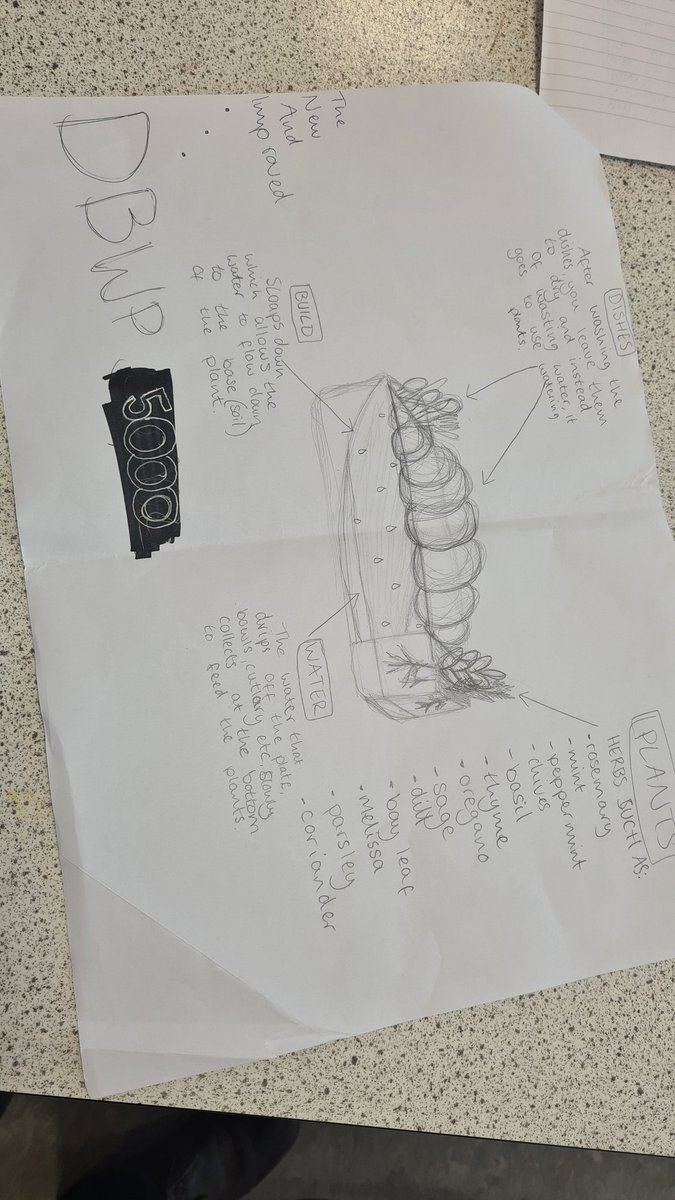 DISHES
After washing the
dishes, you leave them
to dry and instead
of wasting water, it
goes to use watering
plants.
PLANTS
HERBS SUCH AS:
- rosemary
- mint
- peppermint
- chives
- basil
- thyme
- oregano
- sage
- dill
- bay leaf
- melissa
- parsley
- coriander
BUILD
Sloaps down
which allows the
water to flow down
to the base(soil)
of the plant.
WATER
The water that
drips off the plate,
bowls, cutlary etc, slowly
collects at the bottom
to feed the plants.
The
New
And
Improved
...
DBWP 5000